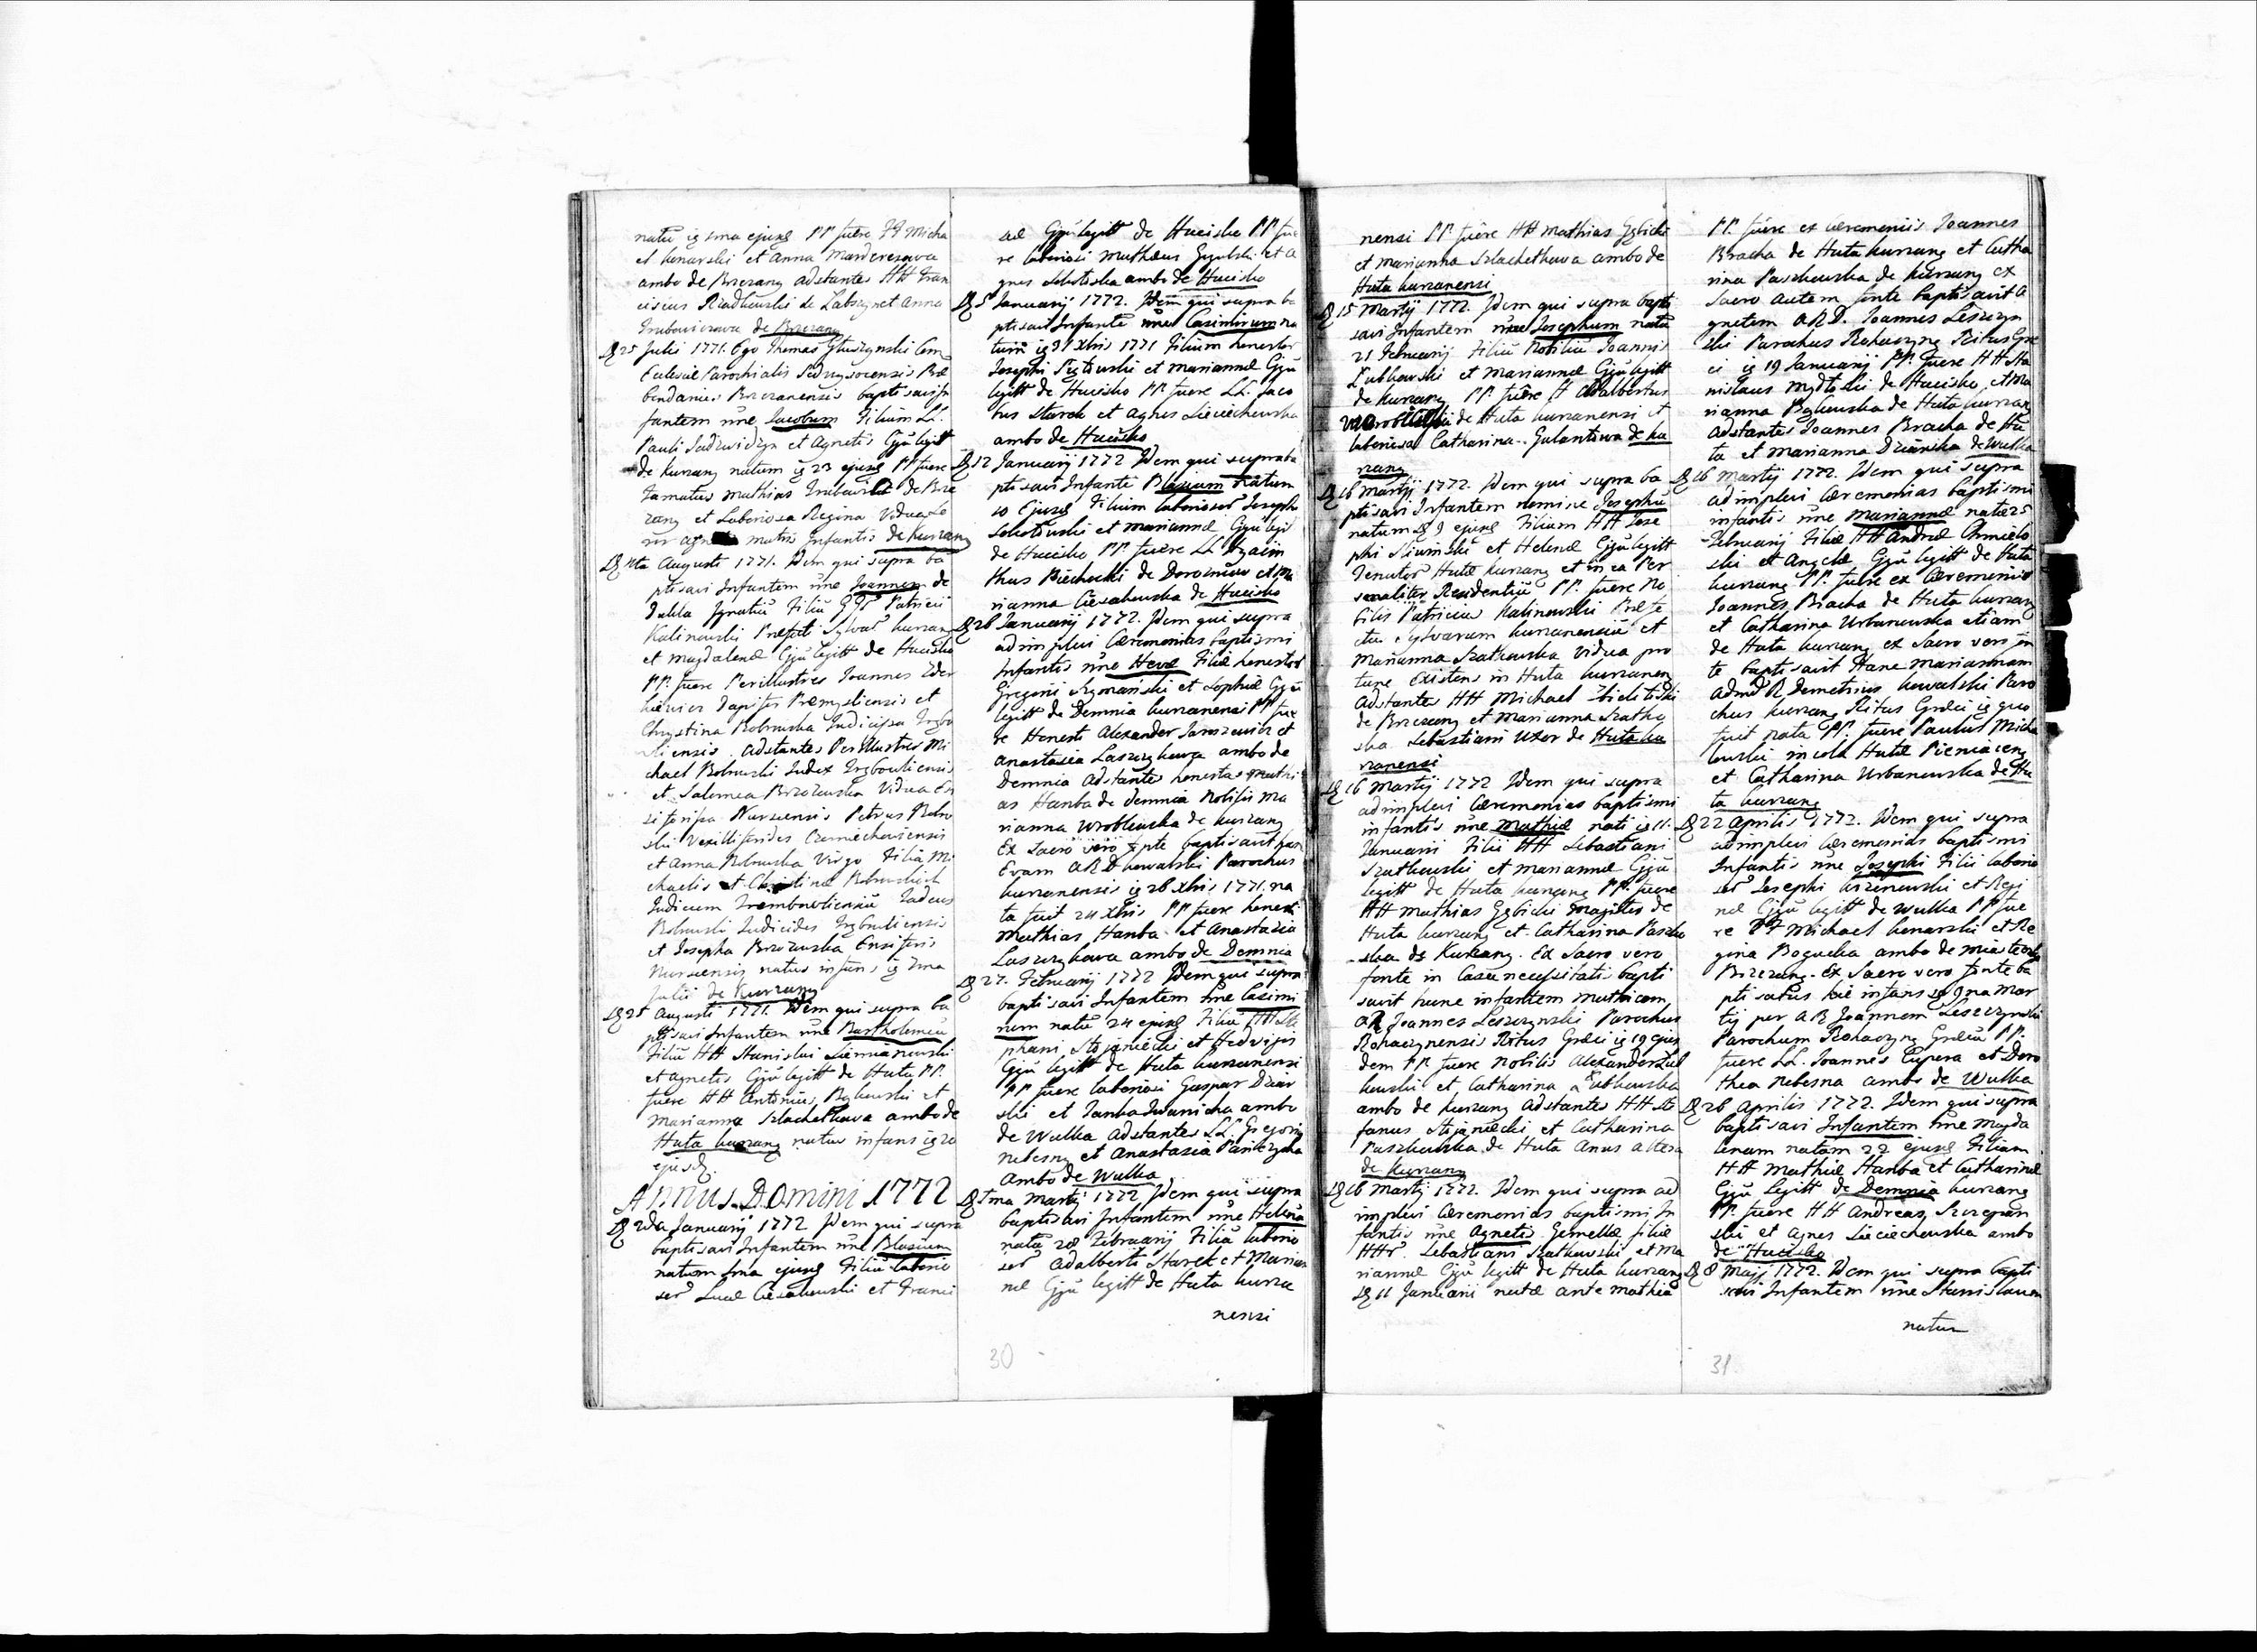 natū ig 1ma ejusd PP fuere HH Micha
el Konarski et Anna Manderesowa
ambo de Brzezany adstantes HH Fran
ciscus et Anna
de Brzezany
D 25 Julii 1771. Ego Thomas Gluszynski Com
Ecclesiæ Parochialis Præ
bendarius Brzezanensis baptisavi In
fantem nne Jacobum Filium LL.
Pauli et Agnetis Cjū legitt
de Kurzany natum ig 23 ejusd PP fuere
Famatus Mathias de Brze
zany et Laboriosa Regina Vidua
matris Infantis de Kurzany
Augusti 1771. Idem qui supra ba
ptisavi Infantem nne Joannem de
Ignatiū Filiū GG Patricii
Kalinowski Præfecti Sylvar Kurzan
et Magdalenæ Cjū legitt de Hucisko
PP. fuere Perillustres Joannes
Dapifer Præmysliensis et
Chrystina Bobrowska Judicissa Trębo
vliensis. Adstantes Perillustres Mi
chael Bobrowski Judex Trębowliensis
et Salomea Brzozowska Vidua En
Nursiensis Petrus Bobro
wski Vexilliferides Czerniechoviensis
et Anna Bobrowska Virgo Filia Mi
chaelis et Christinæ
Judicum Trembowliensiū Tadeus
Bobrowski Judicides Trębowliensis
et Josepha Brzozowska Ensiferis
Nursiensis natus infans ig 1ma
Julii de Kurzany
Augusti 1771. Idem qui supra ba
ptisavi Infantem nne Bartholomeū
Filiū HH Stanislai
et Agnetis Cjū legitt de Huta PP.
fuere HH Antonius Bąkowski et
Marianna Szlachetkowa ambo de
Huta Kurzany natus infans ig 20
ejusd.
Annus Domini 1772
D 2da Januarij 1772 Idem qui supra
baptisavi Infantem nne Blasium
natum 1ma ejusd Filiū laborio
sor Lucæ Ciesakowski et Franci
scæ Cjū legitt de Hucisko PP fue
re laboriosi Mathæus et A
gnes Sobotiska ambo de Hucisko
D 5 Januarij 1772. Idem qui supra ba
ptisavi Infantē nne Casimirum na
tum ig 31 Xbris 1771 Filium honestor
Josephi et Mariannæ Cjū
legitt de Hucisko PP fuere LL. Jaco
bus Starek et Agnes Sieciechowska
ambo de Hucisko
D 12 Januarij 1772 Idem qui supra ba
ptisavi Infantē Blasium Natum
10 Ejusd Filium laboriosor Joseph
Sobotowski et Mariannæ Cjū legi
de Hucisko PP. fuere LL Hyacin
thus Biechocki de et Ma
rianna Ciesakowska de Hucisko
D 26 Januarij 1772. Idem qui supra
adimplevi Cæremonias baptismi
Infantis nne Hevæ Filiæ honestor
Gregorii Szymański et Sophiæ Cjū
legitt de Demnia Kurzanensi PP fue
re Honesti Alexander Jaroszewicz et
Anastasia Laszczykowa ambo de
Demnia Adstantes honestus Mathi
as Hanba de Demnia Nobilis Ma
rianna Wroblewska de Kurzany
Ex Sacro vero fonte baptisavit hanc
Evam ARD Kowalski Parochus
Kurzanensis ig 26 Xbris 1771. na
ta fuit 24 Xbris PP fuere honesti
Mathias Hanba et Anastasia
Laszczykowa ambo de Demnia
D 27. Februarij 1772 Idem qui supra
baptisavi Infantem nne Casimi
rum natū 24 ejusd Filiū HH Ste
phani Stojaniecki et Hedvigis
Cjū legitt de Huta Kurzanensi
PP fuere laboriosi Gaspar Dziar
ski et Iwanicha ambo
de Wulka Adstantes LL. Gregorig
Nebesny et Anastasia
ambo de Wulka
D 1ma Martij 1772 Idem qui supra
baptisavi Infantem nne Helena
natā 28 Februarij Filiā laborio
sor Adalberti Starek et Marian
næ Cjū legitt de Huta Kurza
nensi
30
nensi PP fuere HH Mathias Gębicki
et Marianna Szlachetkowa ambo de
Huta Kurzanensi
D 15 Martij 1772. Idem qui supra bapti
savi Infantem nne Josephum natū
21 Februarij Filiū Nobiliū Joannis
Lubkowski et Mariannæ Cjū legitt
de Kurzany PP. fuere H Adalbertus
de Huta Kurzanensi et
laboriosa Catharina Galantowa de Ku
rzany
D 16 Martij 1772. Idem qui supra ba
ptisavi Infantem nomine Josephū
natum D 9 ejusd Filium HH Jose
phi Sliwinski et Helenæ Cjū legitt
Tenutor Hutæ Kurzany et in ea Per
sonaliter Residentiū PP. fuere No
bilis Patricius Kalinowski Præfe
ctus Sylvarum Kurzanensiū et
Marianna Szatkowska Vidua pro
tunc Existens in Huta Kurzanen
Adstantes HH Michael
de Brzezany et Marianna Szatko
wska Sebastiani Uxor de Huta Ku
rzanensi
D 16 Martij 1772 Idem qui supra
adimplevi Cæremonias baptismi
infantis nne Mathiæ nati ig 11.
Januarii Filii HH Sebastiani
Szatkowski et Mariannæ Cjū
legitt de Huta Kurzany PP. fuere
HH Mathias Gębicki Magister de
Huta Kurzany et Catharina Paszko
wska de Kurzany. Ex Sacro vero
fonte in Casu necessitatis bapti
savit hunc infantem Mathiam
AR Joannes Leszczynski Parochus
Rohaczynensis Ritus Græci ig 19 ejus
dem PP. fuere Nobilis Alexander Lub
kowski et Catharina Lubkowska
ambo de Kurzany Adstantes HH Ste
fanus Stojaniecki et Catharina
Paszkowska de Huta Unus altera
de Kurzany
D 16 Martij 1772. Idem qui supra ad
implevi Cæremonias baptismi In
fantis nne Agnetis Gemellæ filiæ
HHr. Sebastiani Szatkowski et Ma
riannæ Cjū legitt de Huta Kurzany
D 11 Januarii natæ ante Mathiā
PP. fuere ex Cæremoniis Joannes
Bracha de Huta Kurzany et Catha
rina Paszkowska de Kurzany ex
Sacro autem fonte baptisavit A
gnetem ARD. Joannes Leszczyn
ski Parochus Rohaczyng Ritus Græ
ci ig 19 Januarij PP. fuere HH Sta
nislaus de Hucisko, et Ma
rianna Bąkowska de Huta Kurzany
Adstantes Joannes Bracha de Hu
ta et Marianna Dziarska de Wulka
D 16 Martij 1772. Idem qui supra
adimplevi Cæremonias baptismi
infantis nne Mariannæ natæ 5
Februarij Filiæ HH Andreæ Chmielo
wski et Angelæ Cjū legitt de Huta
Kurzany PP. fuere ex Cæremoniis
Joannes Bracha de Huta Kurzany
et Catharina Urbanowska etiam
de Huta Kurzany ex Sacro vero fon
te baptisavit Hanc Mariannam
Admd R Demetrius Kowalski Paro
chus Kurzany Ritus Græci ig quo
fuit nata PP. fuere Paulus Micha
lowski incola Hutæ Pieniaceng
et Catharina Urbanowska de Hu
ta Kurzany
D 22 Aprilis 1772. Idem qui supra
adimplevi Cæremonias baptismi
Infantis nne Josephi Filii laborio
sor Josephi et Regi
næ Cjū legitt de Wulka PP fue
re HH Michael Konarski et Re
gina Bogucka ambo de Miasteczko
Brzezany. Ex Sacro vero fonte ba
ptisatus hic infans ig 9na Mar
tij per AR Joannem Leszczynski
Parochum Rohaczyng Græcū PP.
fuere LL. Joannes Cupera et Doro
thea Nebesna ambo de Wulka
D 26 Aprilis 1772. Idem qui supra
baptisavi Infantem nne Magda
lenam natam 22 ejusd Filiam
HH Mathiæ Hanba et Catharinæ
Cjū Legitt de Demnia Kurzany
PP. fuere HH Andreas Szczepan
ski et Agnes Sieciechowska ambo
de Hucisko
D 8 Maij 1772. Idem qui supra bapti
savi Infantem nne Stanislaum
natum
31